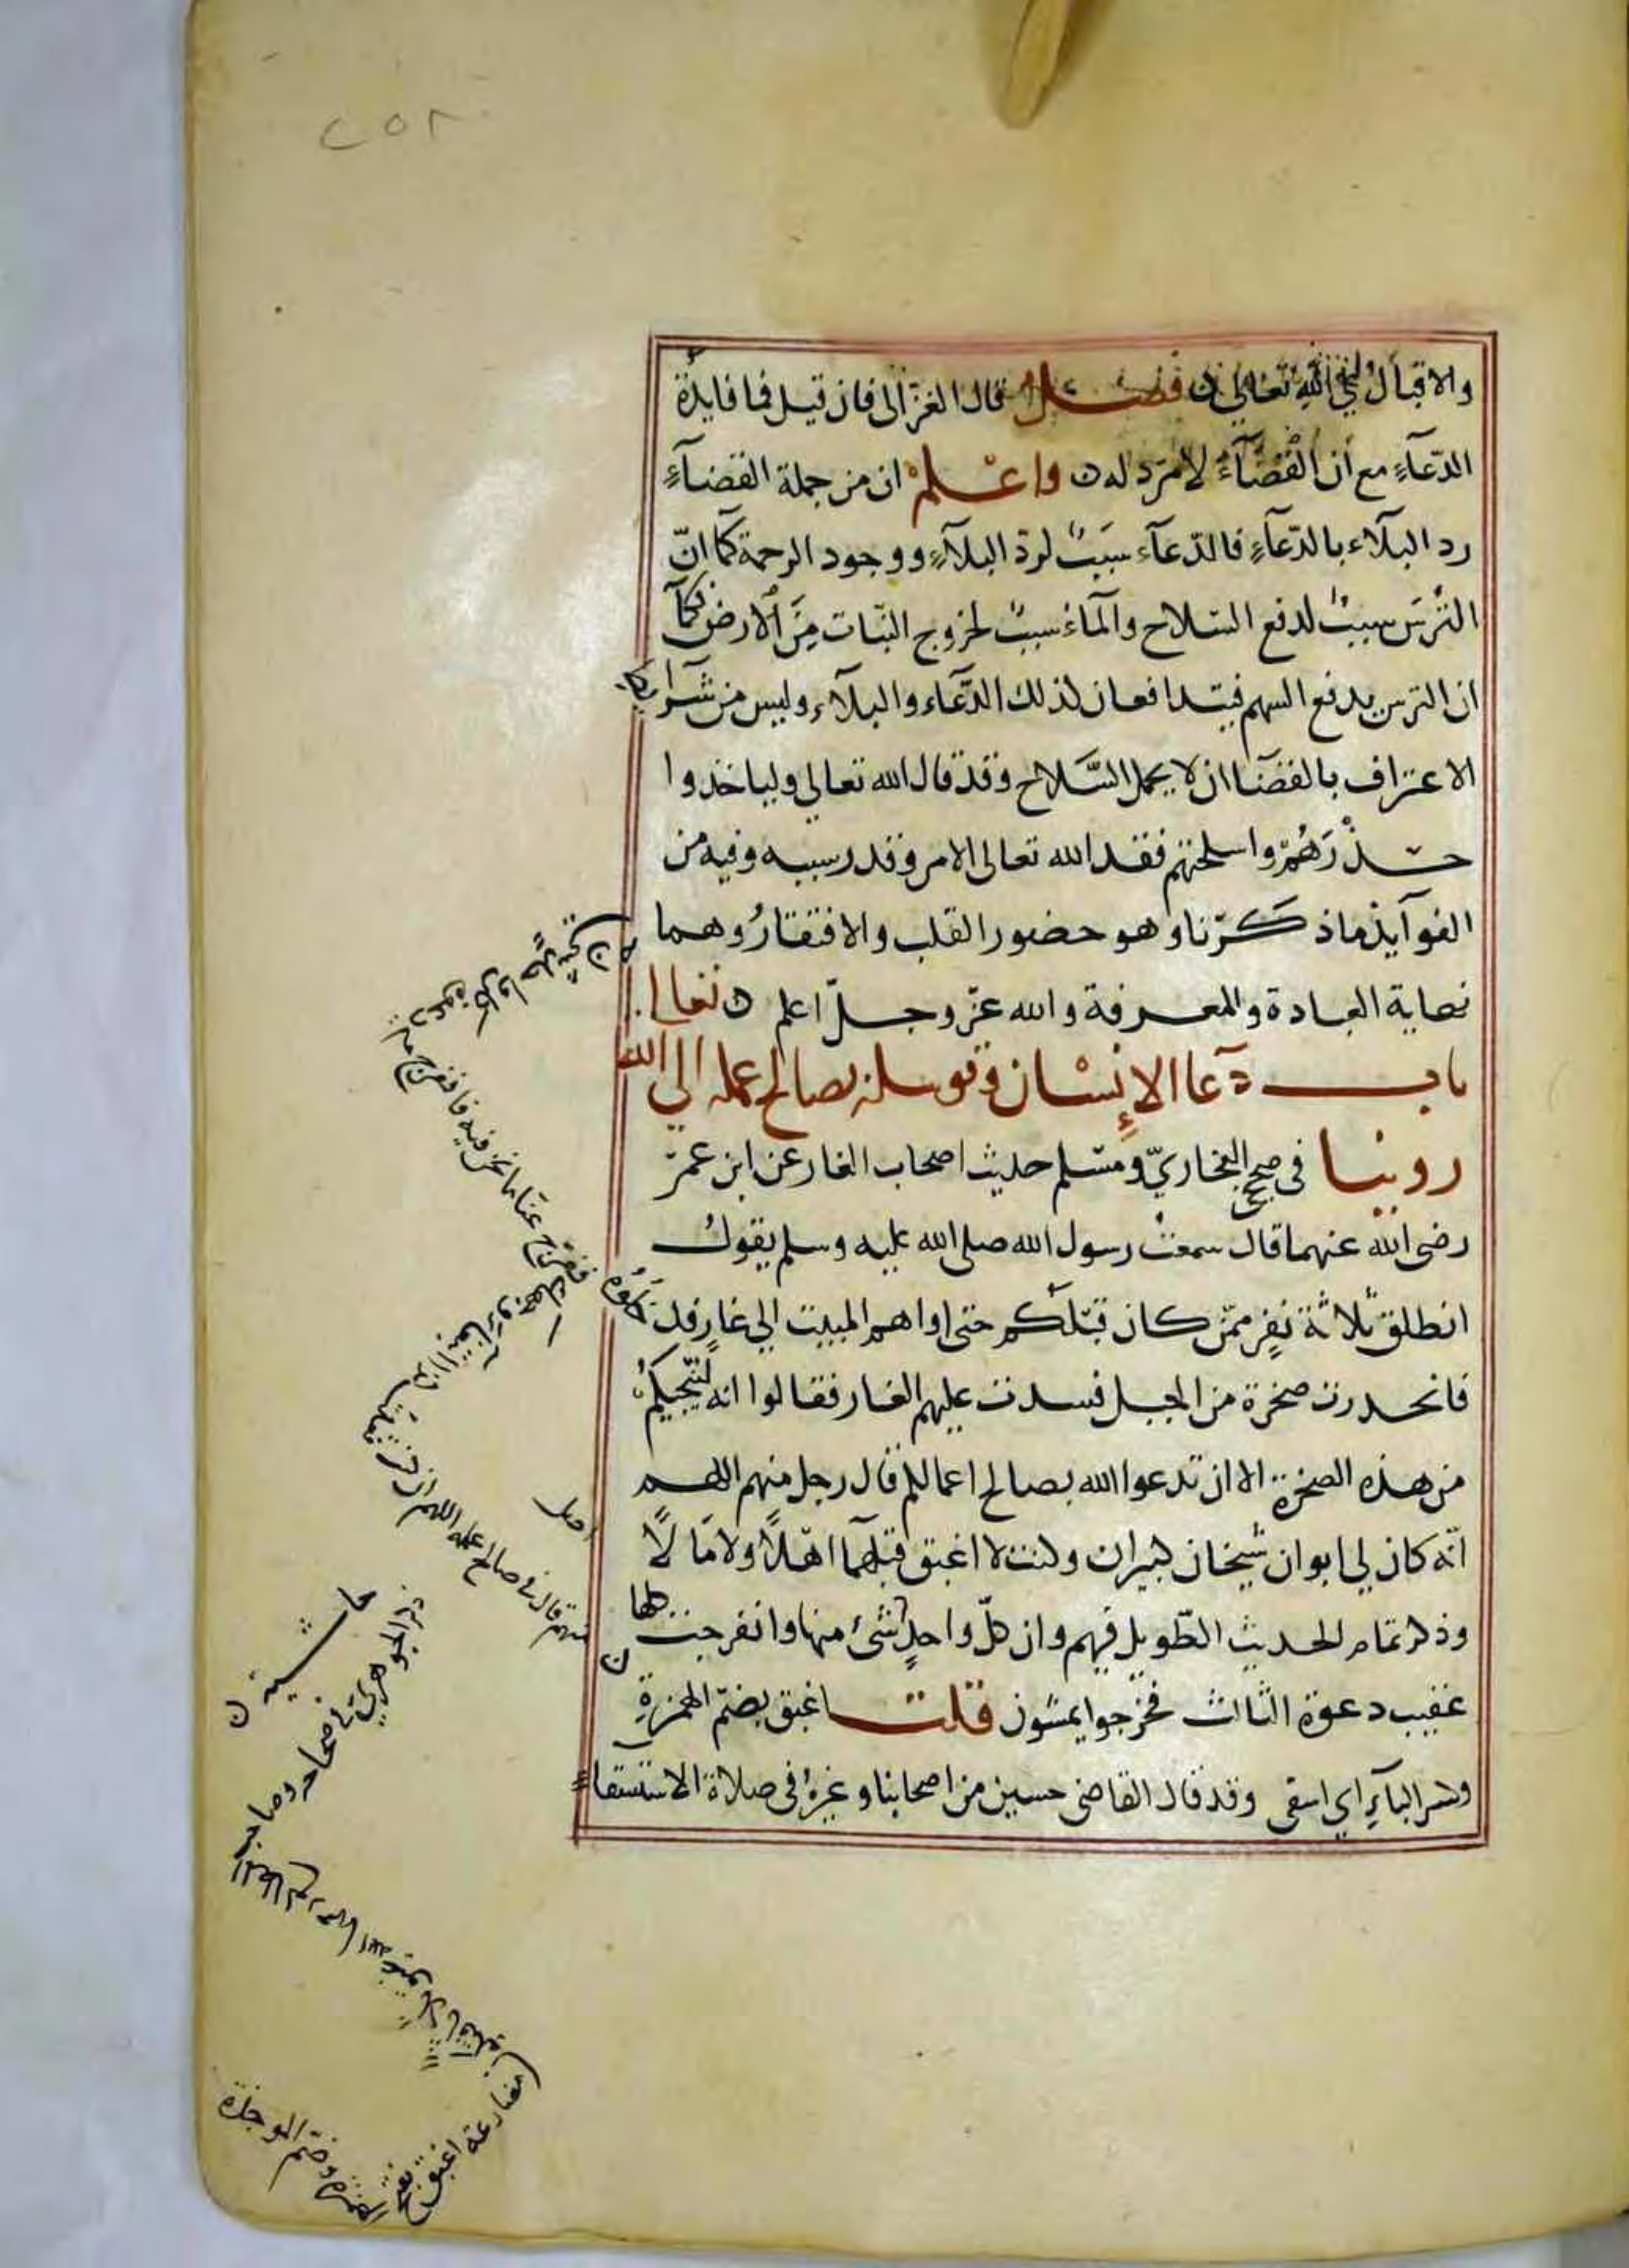 ٢٥٨
والاقبال الى الله تعالى ن فصل قال الغزالى فان قيل فما فايدة
الدّعآءِ مع أن القضآءَ لامردّ له ن واعلم ان من جملة القضآءِ
رد البلآء بالدّعآءِ فالدّعآء سبَبٌ لردّ البلآءِ ووجود الرحمة كما انّ
التُرسَ سببٌ لدفع السّلاح والمآء سببٌ لخروج النبّات مِنَ الارض فكمآ
ان الترس يدفع السهم فيتدافعان لذلك الدّعآء والبلآء وليس من شرايط
الاعتراف بالقضآ ان لا يحمل السَّلاح وقد قال الله تعالى ولياخذوا
حذْرَهُمْ واسلحتهم فقد الله تعالى الامر وقدر سببه وفيه من
الفوآيد ما ذكرّنا وهو حضور القلب والافتقارُ وهما
نهاية العبادة والمعرفة والله عزّ وجلّ اعلم ن
باب دعآ الإنسان وتوسله بصالح عمله الى الله تعالى
روينا فى صحيح البخاريّ ومسلم حديث اصحاب الغار عن ابن عمر
رضى الله عنهما قال سمعت رسول الله صلى الله عليه وسلم يقول
انطلق ثلاثة نفرٍ ممّن كان قبلكم حتى اواهم المبيت الى غارٍ فدخلوه
فانحدرت صخرة من الجبل فسدت عليهم الغار فقالوا انه لا ينجيكم
من هذه الصخرة الا ان تدعوا الله بصالح اعمالكم قال رجل منهم اللهم
انّه كان لي ابوان شيخان كبيران وكنت لا اغبق قبلهما اهلاً ولا مالاً
وذكر تمام الحديث الطّويل فيهم وان كلّ واحدٍ شئ منها وانفرجت كلها
عقيب دعوة الثالث فخرجوا يمشون قلت اغبق بضمّ الهمزةِ
وكسر البآءِ اي اسقى وقد قال القاضى حسين من اصحابنا وغيره فى صلاة الاستسقاء
دعوة كل واحدٍ
ففرّج عنّا ما نحن فيه فانفرج
منهم قال فى صالح عمله اللهم ان كنت
اصل
حاشية ن
ذكر الجوهرى فى صحاحه وصاحب
مضارعه اغبق بفتح
الهمزة وضمّ الموحدة